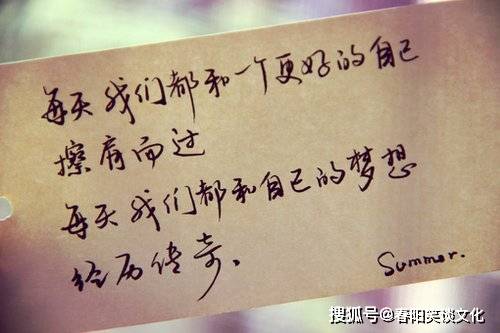 每天我们都和一个更好的自己
擦肩而过
每天我们都和自己的梦想
经历传奇。
Summer.
搜狐号@春阳笑谈文化